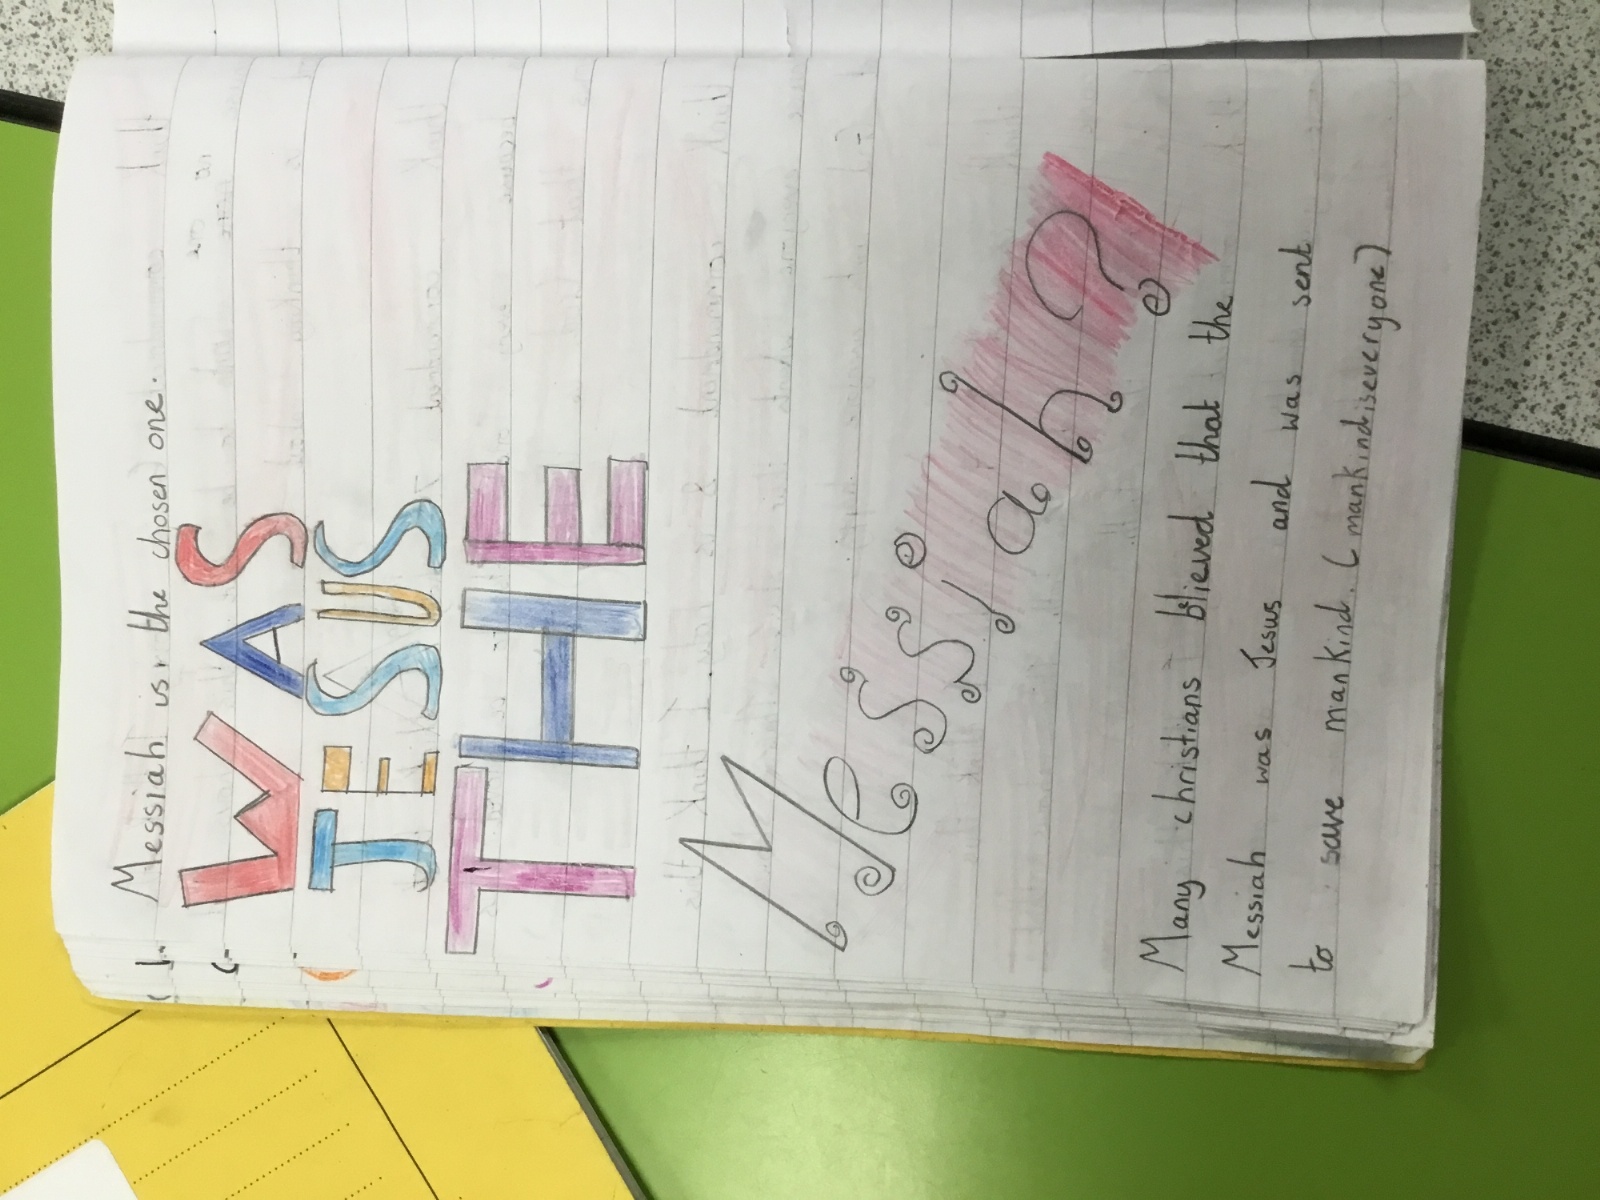 Messiah is the chosen one.
WAS
JESUS
THE
Messiah?
Many christians blieved that the
Messiah was Jesus and was sent
to save mankind. (mankindiseveryone)